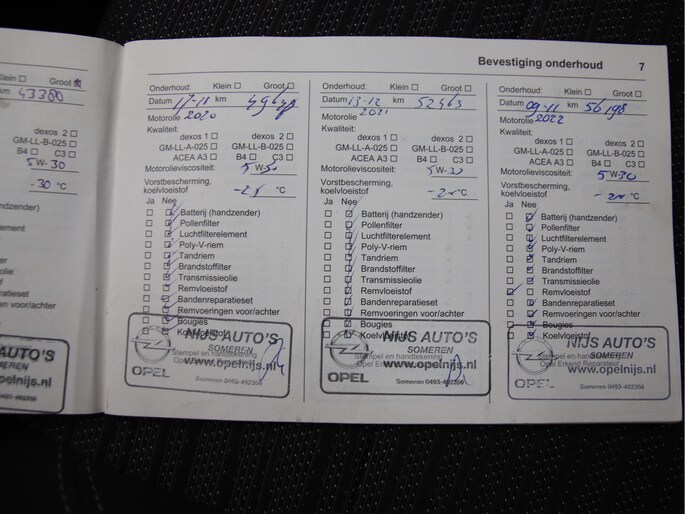 Bevestiging onderhoud 7
Klein ☐ Groot ☒
km 43380
dexos 2 ☐
GM-LL-B-025 ☐
B4 ☐ C3 ☐
5W-30
-30 °C
(handzender)
element
olie
paratieset
en voor/achter
AUTO'S
SOMEREN
opelnijs.nl
Onderhoud: Klein ☐ Groot ☐
Datum 17-11 km
Motorolie 2020
Kwaliteit:
dexos 1 ☐ dexos 2 ☐
GM-LL-A-025 ☐ GM-LL-B-025 ☐
ACEA A3 ☐ B4 ☐ C3 ☐
Motorolieviscositeit: 5W-30
Vorstbescherming,
koelvloeistof °C
Ja Nee
Batterij (handzender)
Pollenfilter
Luchtfilterelement
Poly-V-riem
Tandriem
Brandstoffilter
Transmissieolie
Remvloeistof
Bandenreparatieset
Remvoeringen voor/achter
Bougies
Koelvloeistof
NIJS AUTO'S
SOMEREN
Stempel en handtekening
www.opelnijs.nl
OPEL
Someren 0493-492356
Onderhoud: Klein ☐ Groot ☐
Datum 13-12 km 52463
Motorolie 2021
Kwaliteit:
dexos 1 ☐ dexos 2 ☐
GM-LL-A-025 ☐ GM-LL-B-025 ☐
ACEA A3 ☐ B4 ☐ C3 ☐
Motorolieviscositeit: 5W-30
Vorstbescherming,
koelvloeistof °C
Ja Nee
Batterij (handzender)
Pollenfilter
Luchtfilterelement
Poly-V-riem
Tandriem
Brandstoffilter
Transmissieolie
Remvloeistof
Bandenreparatieset
Remvoeringen voor/achter
Bougies
Koelvloeistof
NIJS AUTO'S
SOMEREN
Stempel en handtekening
www.opelnijs.nl
OPEL
Someren 0493-492356
Onderhoud: Klein ☐ Groot ☐
Datum 09-11 km 56198
Motorolie 2022
Kwaliteit:
dexos 1 ☐ dexos 2 ☐
GM-LL-A-025 ☐ GM-LL-B-025 ☐
ACEA A3 ☐ B4 ☐ C3 ☐
Motorolieviscositeit: 5W-30
Vorstbescherming,
koelvloeistof °C
Ja Nee
Batterij (handzender)
Pollenfilter
Luchtfilterelement
Poly-V-riem
Tandriem
Brandstoffilter
Transmissieolie
Remvloeistof
Bandenreparatieset
Remvoeringen voor/achter
Bougies
Koelvloeistof
NIJS AUTO'S
SOMEREN
Stempel en handtekening
Opel Erkend Reparateur
www.opelnijs.nl
OPEL
Someren 0493-492356